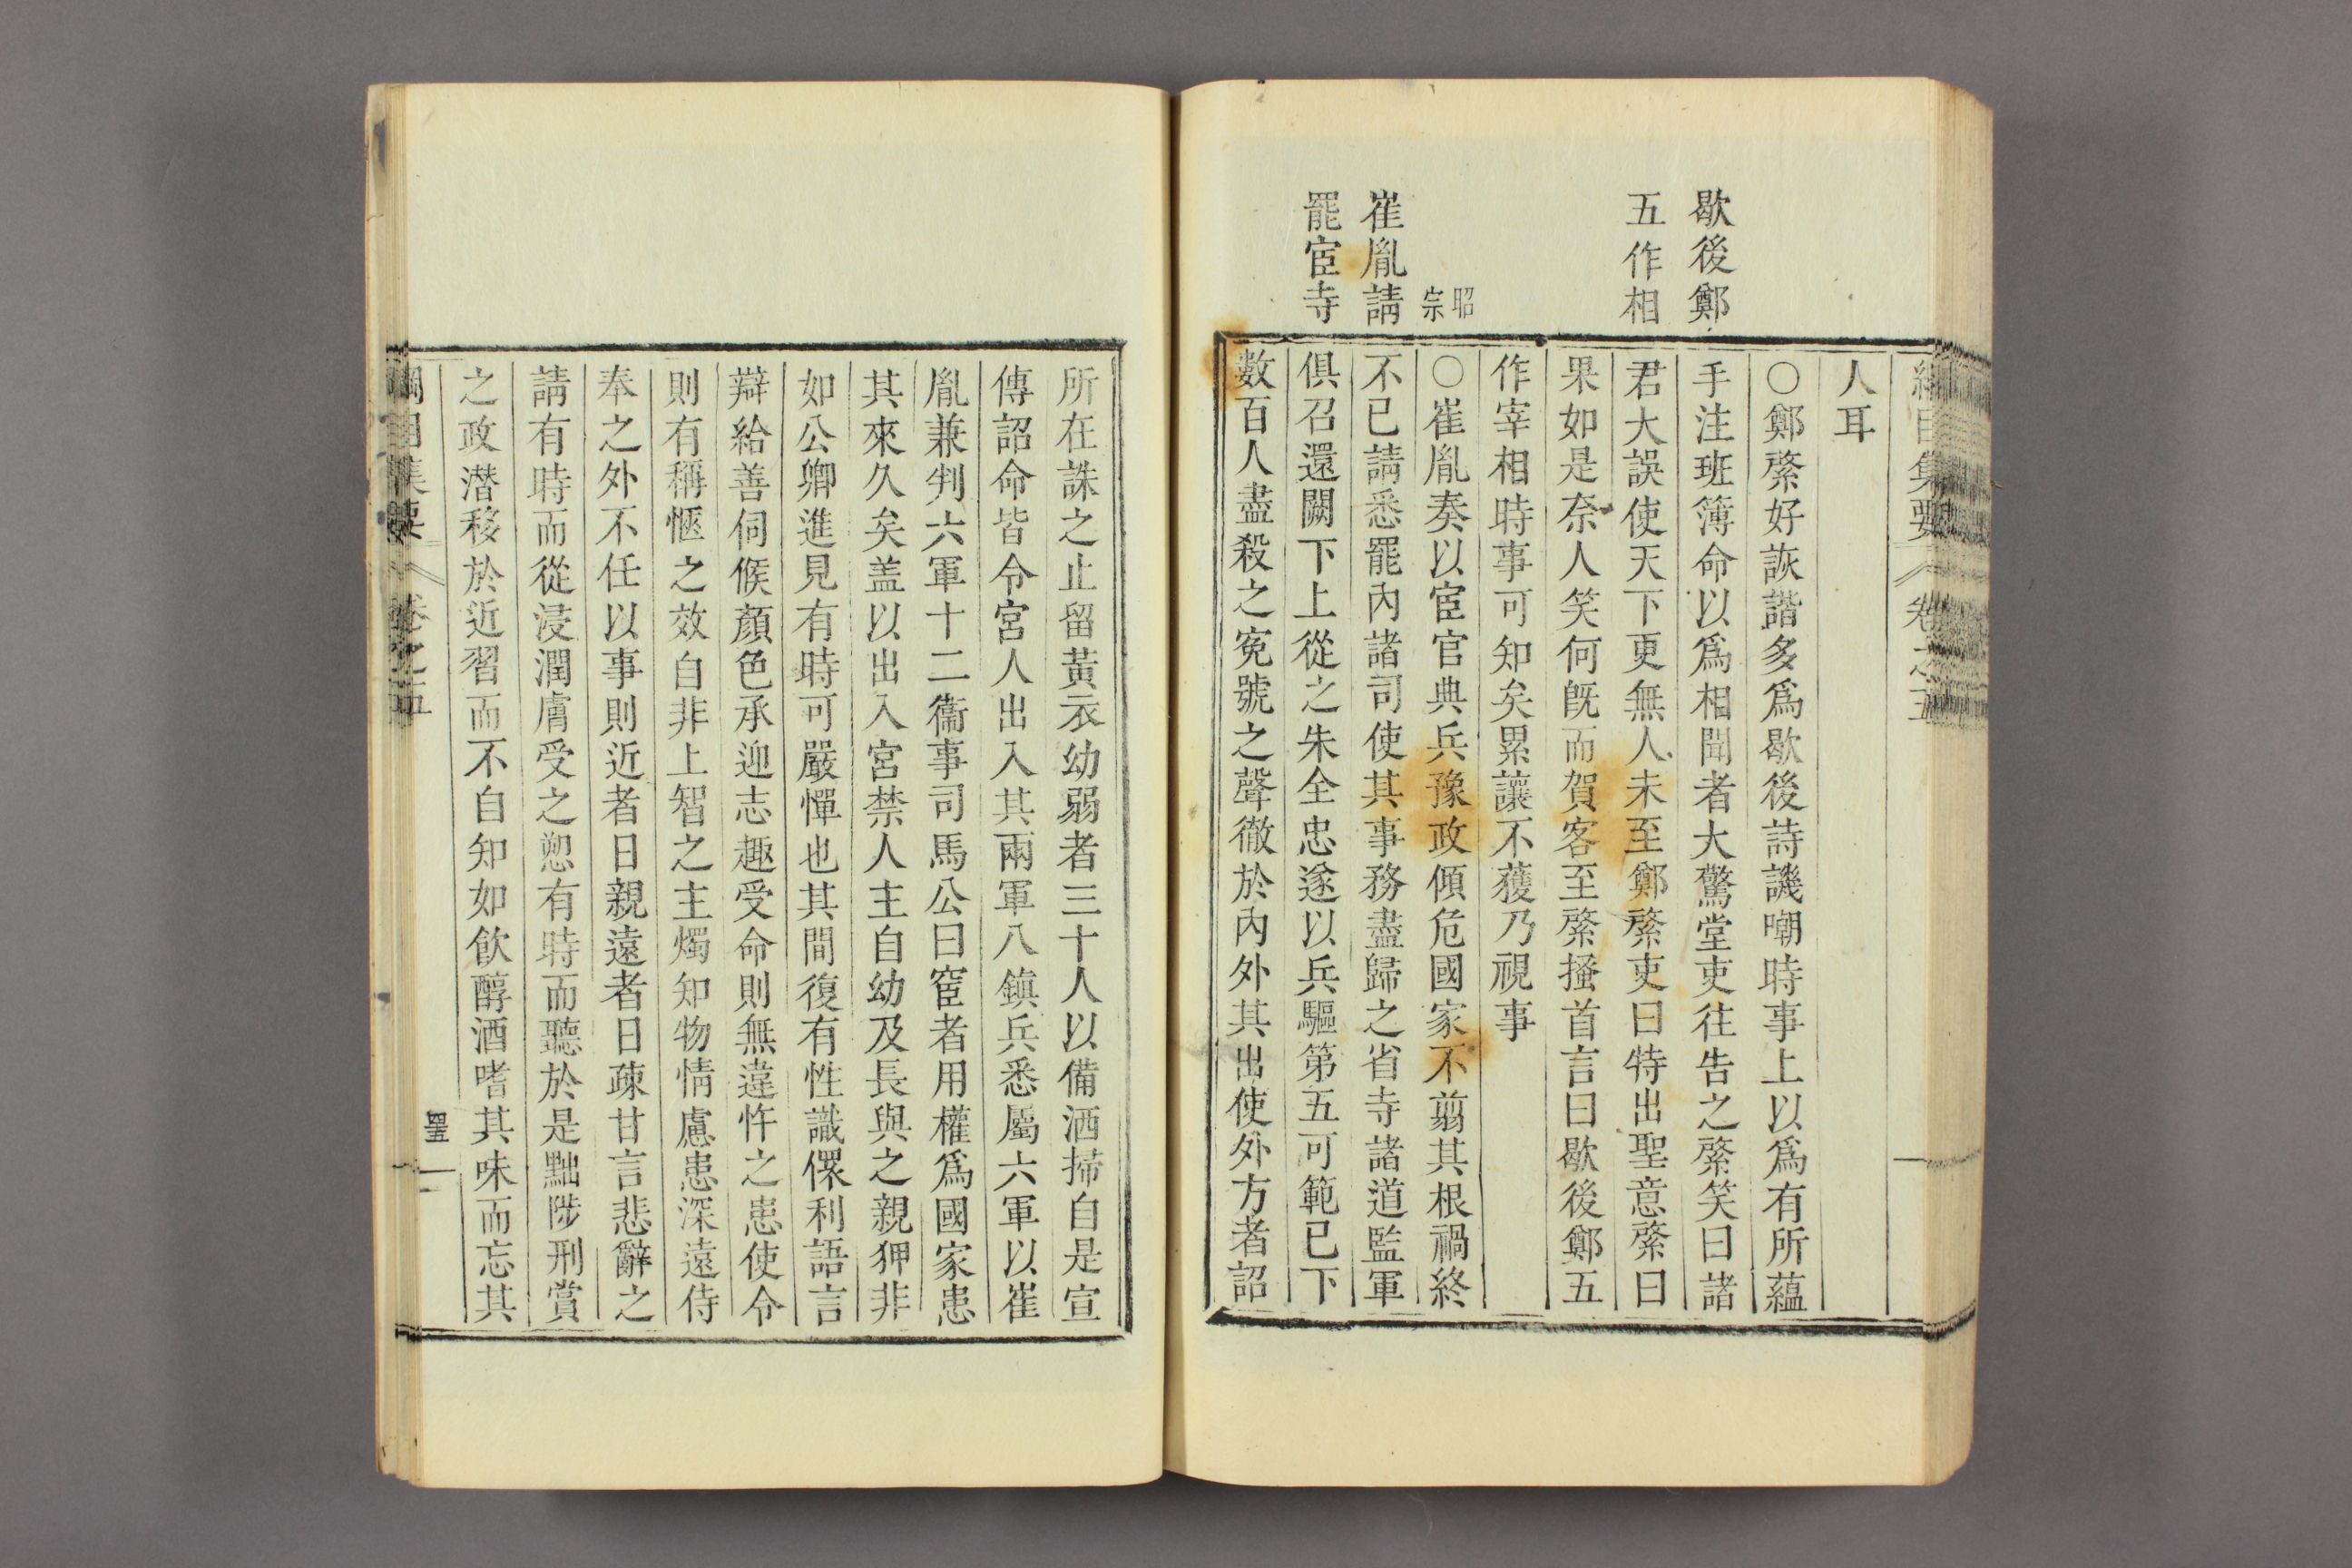 歇後鄭
五作相
昭
宗
崔胤請
罷宦寺
綱目集要 卷之五
人耳
○鄭綮好詼諧多爲歇後詩譏嘲時事上以爲有所蘊
手注班簿命以爲相聞者大驚堂吏往告之綮笑曰諸
君大誤使天下更無人未至鄭綮吏曰特出聖意綮曰
果如是奈人笑何旣而賀客至綮搔首言曰歇後鄭五
作宰相時事可知矣累讓不獲乃視事
○崔胤奏以宦官典兵豫政傾危國家不翦其根禍終
不已請悉罷內諸司使其事務盡歸之省寺諸道監軍
俱召還闕下上從之朱全忠遂以兵驅第五可範已下
數百人盡殺之寃號之聲徹於內外其出使外方者詔
所在誅之止留黃衣幼弱者三十人以備洒掃自是宣
傳詔命皆令宮人出入其兩軍八鎭兵悉屬六軍以崔
胤兼判六軍十二衞事司馬公曰宦者用權爲國家患
其來久矣盖以出入宮禁人主自幼及長與之親狎非
如公卿進見有時可嚴憚也其間復有性識儇利語言
辯給善伺候顏色承迎志趣受命則無違忤之患使令
則有稱愜之效自非上智之主燭知物情慮患深遠侍
奉之外不任以事則近者日親遠者日疎甘言悲辭之
請有時而從浸潤膚受之愬有時而聽於是黜陟刑賞
之政潛移於近習而不自知如飮醇酒嗜其味而忘其
綱目集要 卷之五